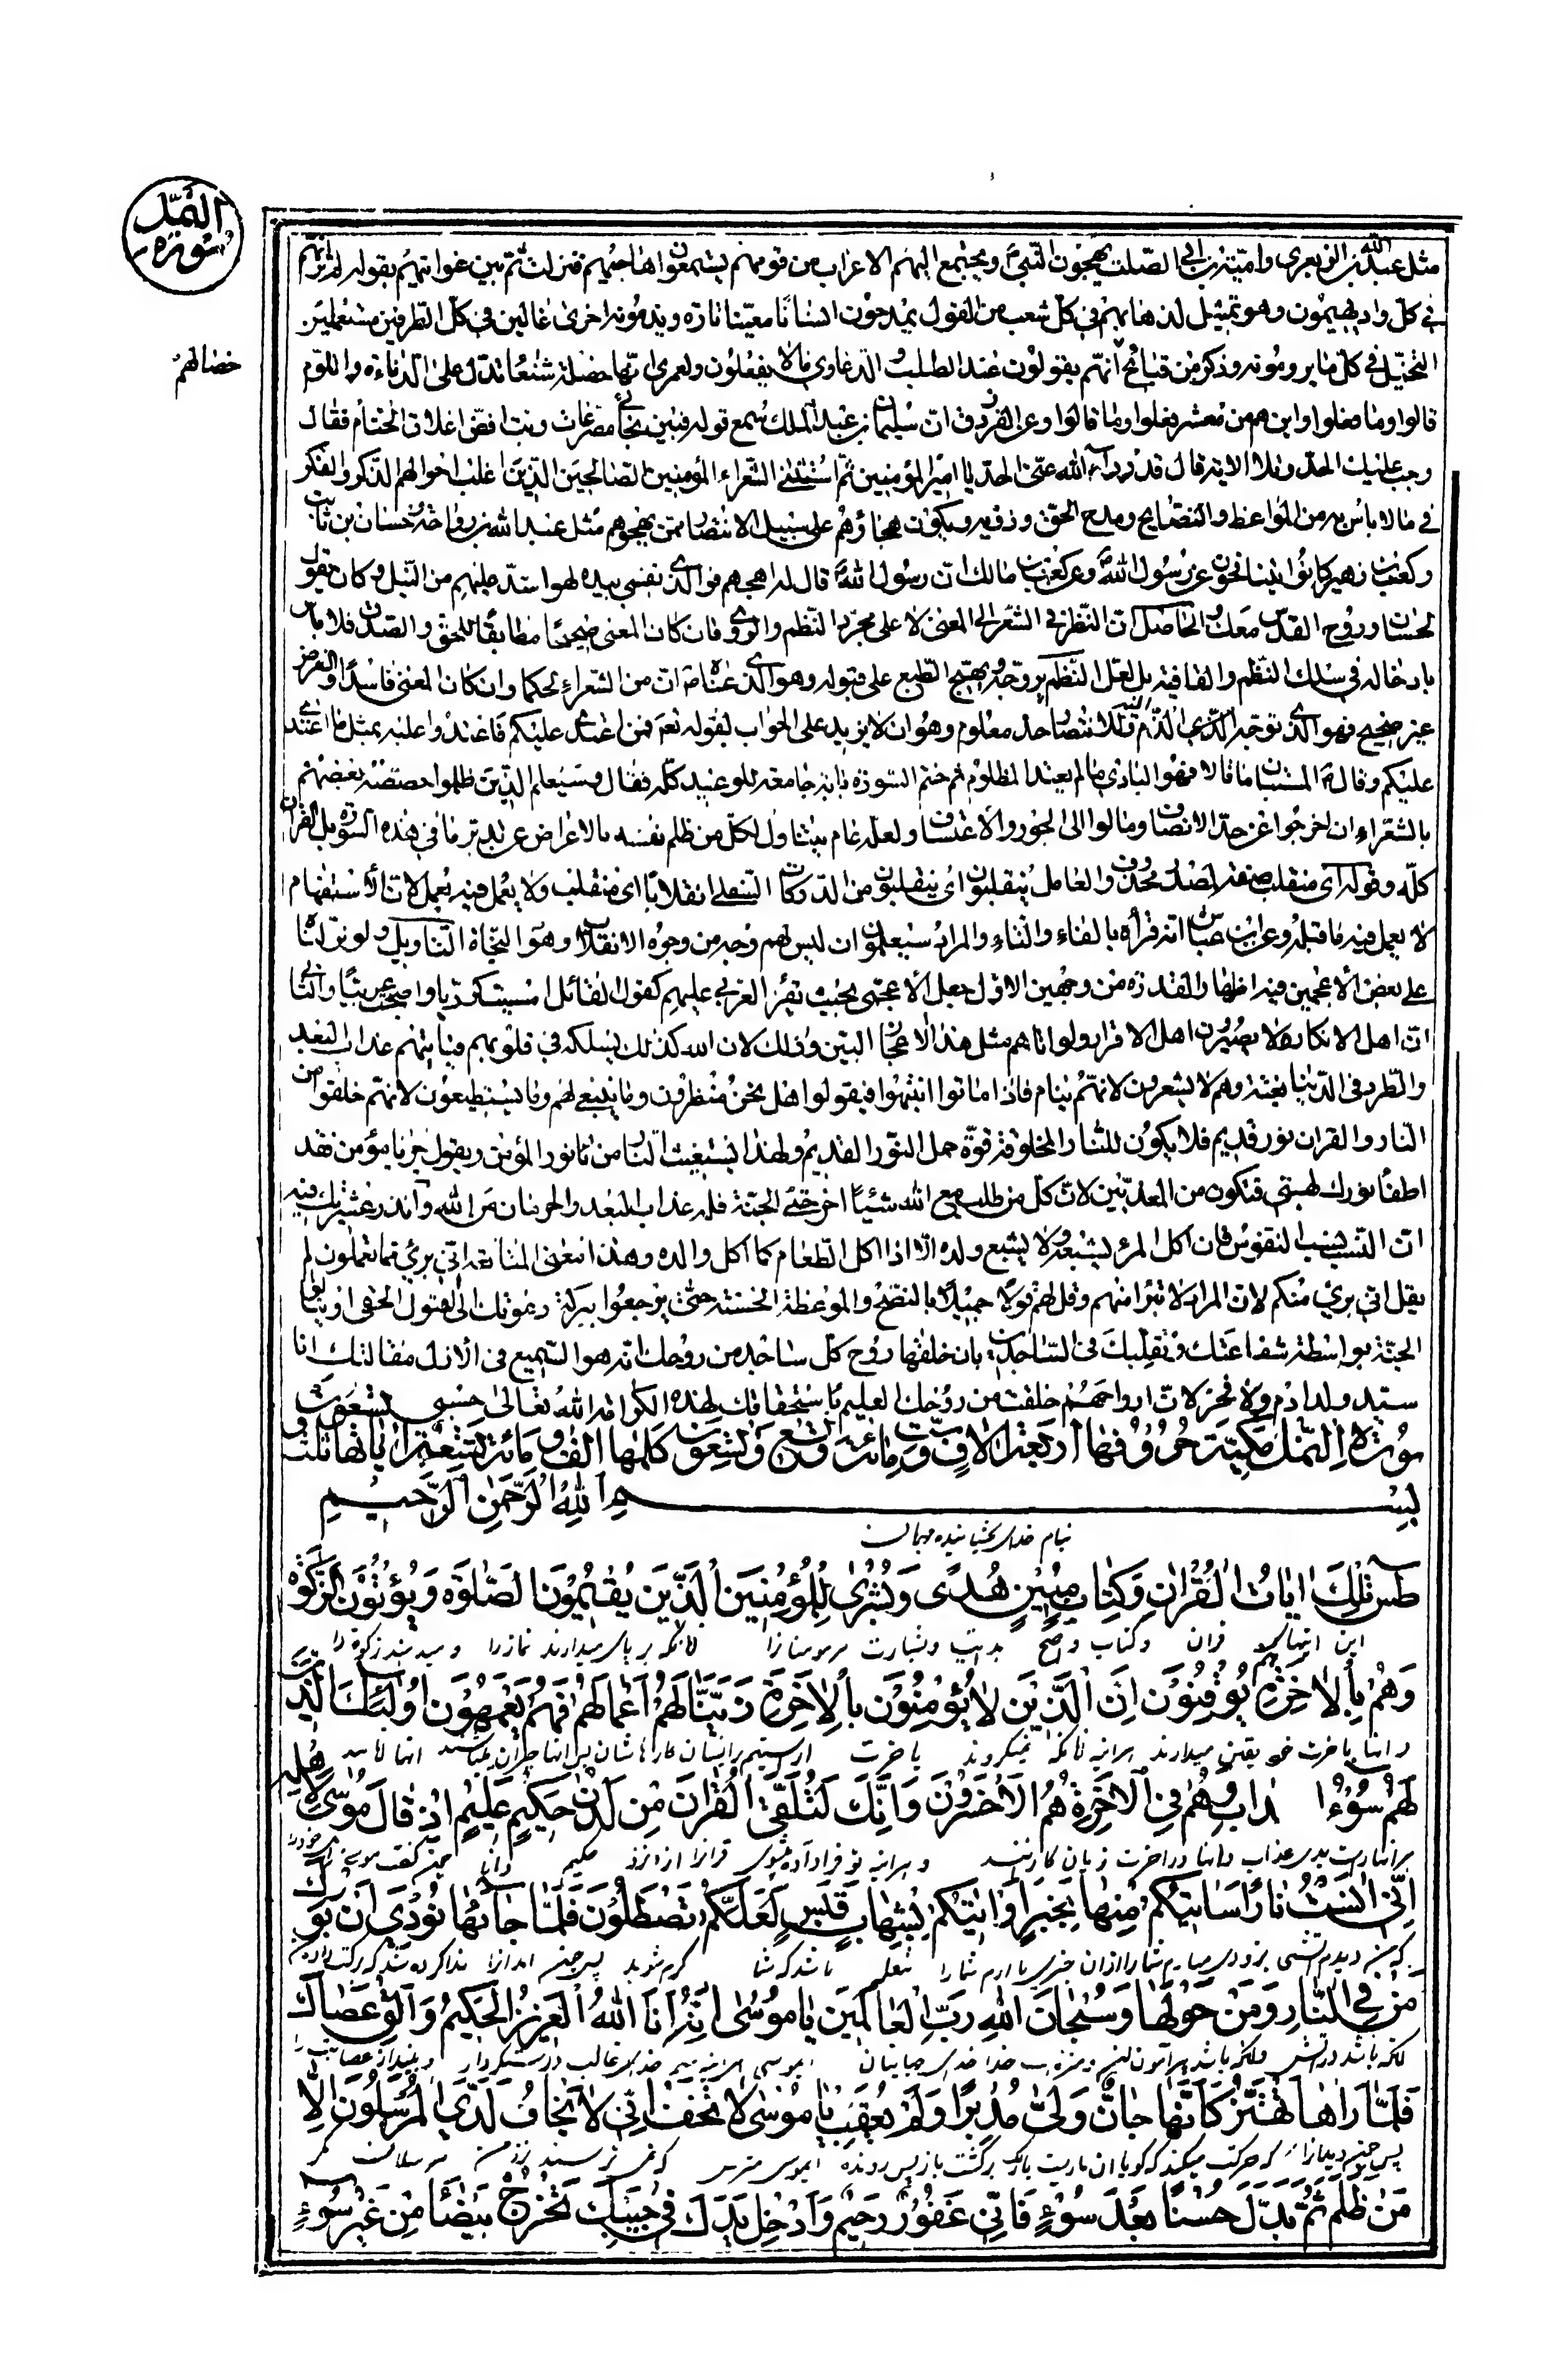 النمل
سورة
خصالهم
مثل عبد الله بن الزبعرى وامية بن ابي الصلت يهجون النبي ويجتمع اليهم الاعراب من قومهم يستمعون اهاجيهم فنزلت ثم بين غوايتهم بقوله الم تر انهم
في كل واد يهيمون وهو تمثيل لذهابهم في كل شعب من القول يمدحون انسانا معينا تارة ويذمونه اخرى غالين في كل الطرفين مستعملين
التخيل في كل ما يرومونه وذكر من قبائح انهم يقولون عند الطلب والدعاوي ما لا يفعلون ولعمري انها خصلة شنعا تدل على الدناءة واللوم
قالوا وما فعلوا واين هم من معشر فعلوا وما قالوا وعن الفرزدق ان سليمان بن عبد الملك سمع قوله فبتن بجانبي مصرعات وبت افض اغلاق الختام فقال
وجب عليك الحد وتلا الاية قال قد درأ الله عني الحد يا امير المؤمنين ثم استثنى الشعراء المؤمنين الصالحين الذين اغلب احوالهم الذكر والفكر
في ما لا باس به من المواعظ والنصايح ومدح الحق وذويه ويكون هجاؤهم على سبيل الانتصار ممن يهجوهم مثل عبد الله بن رواحة وحسان بن ثابت
وكعب بن زهير كانوا ينافحون عن رسول الله وعن كعب بن مالك ان رسول الله قال له اهجهم فوالذي نفسي بيده لهو اشد عليهم من النبل وكان يقول
لحسان وروح القدس معك والحاصل ان النظر في الشعر الى المعنى لا على مجرد النظم والروي فان كان المعنى صحيحا مطابقا للحق والصدق فلا باس
بادخاله في سلك النظم والقافية بل لعل النظم يروجه ويهيج الطبع على قبوله وهو الذي عناه ان من الشعراء لحكما وان كان المعنى فاسدا والغرض
غير صحيح فهو الذي توجه اليه الذم وللانتصار حد معلوم وهو ان لا يزيد على الجواب لقوله تعم فمن اعتدى عليكم فاعتدوا عليه بمثل ما اعتدى
عليكم وقال المستبان ما قالا فهو البادي ما لم يعتد المظلوم ثم ختم السورة باية جامعة للوعيد كله فقال وسيعلم الذين ظلموا خصصه بعضهم
بالشعراء ان خرجوا عن حد الانصاف ومالوا الى الجور والاعتساف ولعله عام يتناول لكل من ظلم نفسه بالاعراض عن تدبر ما في هذه السورة بل القران
كله وقوله اي منقلب صفة لمصدر محذوف والعامل ينقلبون اي ينقلبون من الدركات السفلى انقلابا اي منقلب ولا يعمل فيه يعلم لان الاستفهام
لا يعمل فيه ما قبله وعن ابن عباس انه قرأه بالفاء والتاء والمراد سيعلمون ان ليس لهم وجه من وجوه الانقلاب وهو النجاة التاويل ولو نزلناه
على بعض الاعجمين فيه اظهار القدرة من وجهين الاول جعل الاعجمي بحيث تقرأ العربي عليهم كقول القائل امسيت كرديا واصبحت عربيا والثاني
ان اهل الانكار لا يصيرون اهل الاقرار ولو اتاهم مثل هذا الاعجاز البين وذلك لان الله كذلك يسلكه في قلوبهم فيأتيهم عذاب البعد
والطرد في الدنيا بغتة وهم لا يشعرون لانهم نيام فاذا ماتوا انتبهوا فيقولوا هل نحن منظرون وما ينبغي لهم وما يستطيعون لانهم خلقوا من
النار والقران نور قديم فلا يكون للنار المخلوقة قوة حمل النور القديم ولهذا تستغيث النار من نور المؤمن ويقول جز يا مؤمن فقد
اطفأ نورك لهبي فتكون من المعذبين لان كل من طلب مع الله شيئا اخر حتى الجنة فله عذاب البعد والحرمان من الله وانذر عشيرتك فيه
ان النسب نسب النفوس فان اكل المرء يشبعه ولا يشبع ولده الا اذا اكل الطعام كما اكل والده وهذا معنى المتابعة اني بريء مما تعملون لم
يقل اني بريء منكم لان المراد لا تبرأ منهم وقل لهم قولا جميلا بالنصح والموعظة الحسنة حتى يرجعوا ببركة دعوتك الى قبول الحق او ينالوا
الجنة بواسطة شفاعتك وتقلبك في الساجدين بان خلقنا روح كل ساجد من روحك انه هو السميع في الازل مقالتك انا
سيد ولد ادم ولا فخر لان ارواحهم خلقت من روحك العليم باستحقاقك لهذه الكرامة الله تعالى حسبي
سورة النمل مكية حروفها اربعة الاف وست ومائة وتسع وتسعون كلمها الف ومائة وتسعة اياتها ثلث وتسعون
بسم الله الرحمن الرحيم
بنام خداى بخشاينده مهربان
طس تلك ايات القران وكتاب مبين هدى وبشرى للمؤمنين الذين يقيمون الصلوة ويؤتون الزكوة
اين ايتهاى قران وكتاب واضح هدايت وبشارت مر مومنانرا انانكه بر پاى ميدارند نماز را و ميدهند زكوة را
وهم بالاخرة هم يوقنون ان الذين لا يؤمنون بالاخرة زينا لهم اعمالهم فهم يعمهون اولئك الذين
وايشان باخرت خود يقين ميدارند بدرستيكه انانكه نميگروند باخرت اراستيم برايشان كارهاشان پس ايشان حيران ميباشند انها انانند
لهم سوء العذاب وهم في الاخرة هم الاخسرون وانك لتلقى القران من لدن حكيم عليم اذ قال موسى لاهله
برايشانست بدى عذاب وايشان در اخرت زيان كارترند و بدرستيكه تو فرا داده ميشوى قرانرا از نزد حكيم دانا چون گفت موسى مر اهل خود را
اني انست نارا ساتيكم منها بخبر او اتيكم بشهاب قبس لعلكم تصطلون فلما جائها نودي ان بورك
كه من ديدم اتشى بزودى ميارم شما را از ان خبرى يا ارم شما را شعله باشد كه شما گرم شويد پس چون امد انرا ندا كرده شد كه بركت داده
من في النار ومن حولها وسبحان الله رب العالمين يا موسى انه انا الله العزيز الحكيم والق عصاك
انكه باشد در اتش و انكه باشد پيرامون ان و منزه است خدا خداى جهانيان اى موسى بدرستيكه منم خداى غالب درست كردار و بينداز عصايت را
فلما راها تهتز كانها جان ولى مدبرا ولم يعقب يا موسى لا تخف اني لا يخاف لدي المرسلون الا
پس چون ديد انرا كه حركت ميكند كه گويا ان ماريست باريك برگشت باز پس رونده اى موسى مترس كه نمى ترسند نزد من مرسلان مگر
من ظلم ثم بدل حسنا بعد سوء فاني غفور رحيم وادخل يدك في جيبك تخرج بيضاء من غير سوء